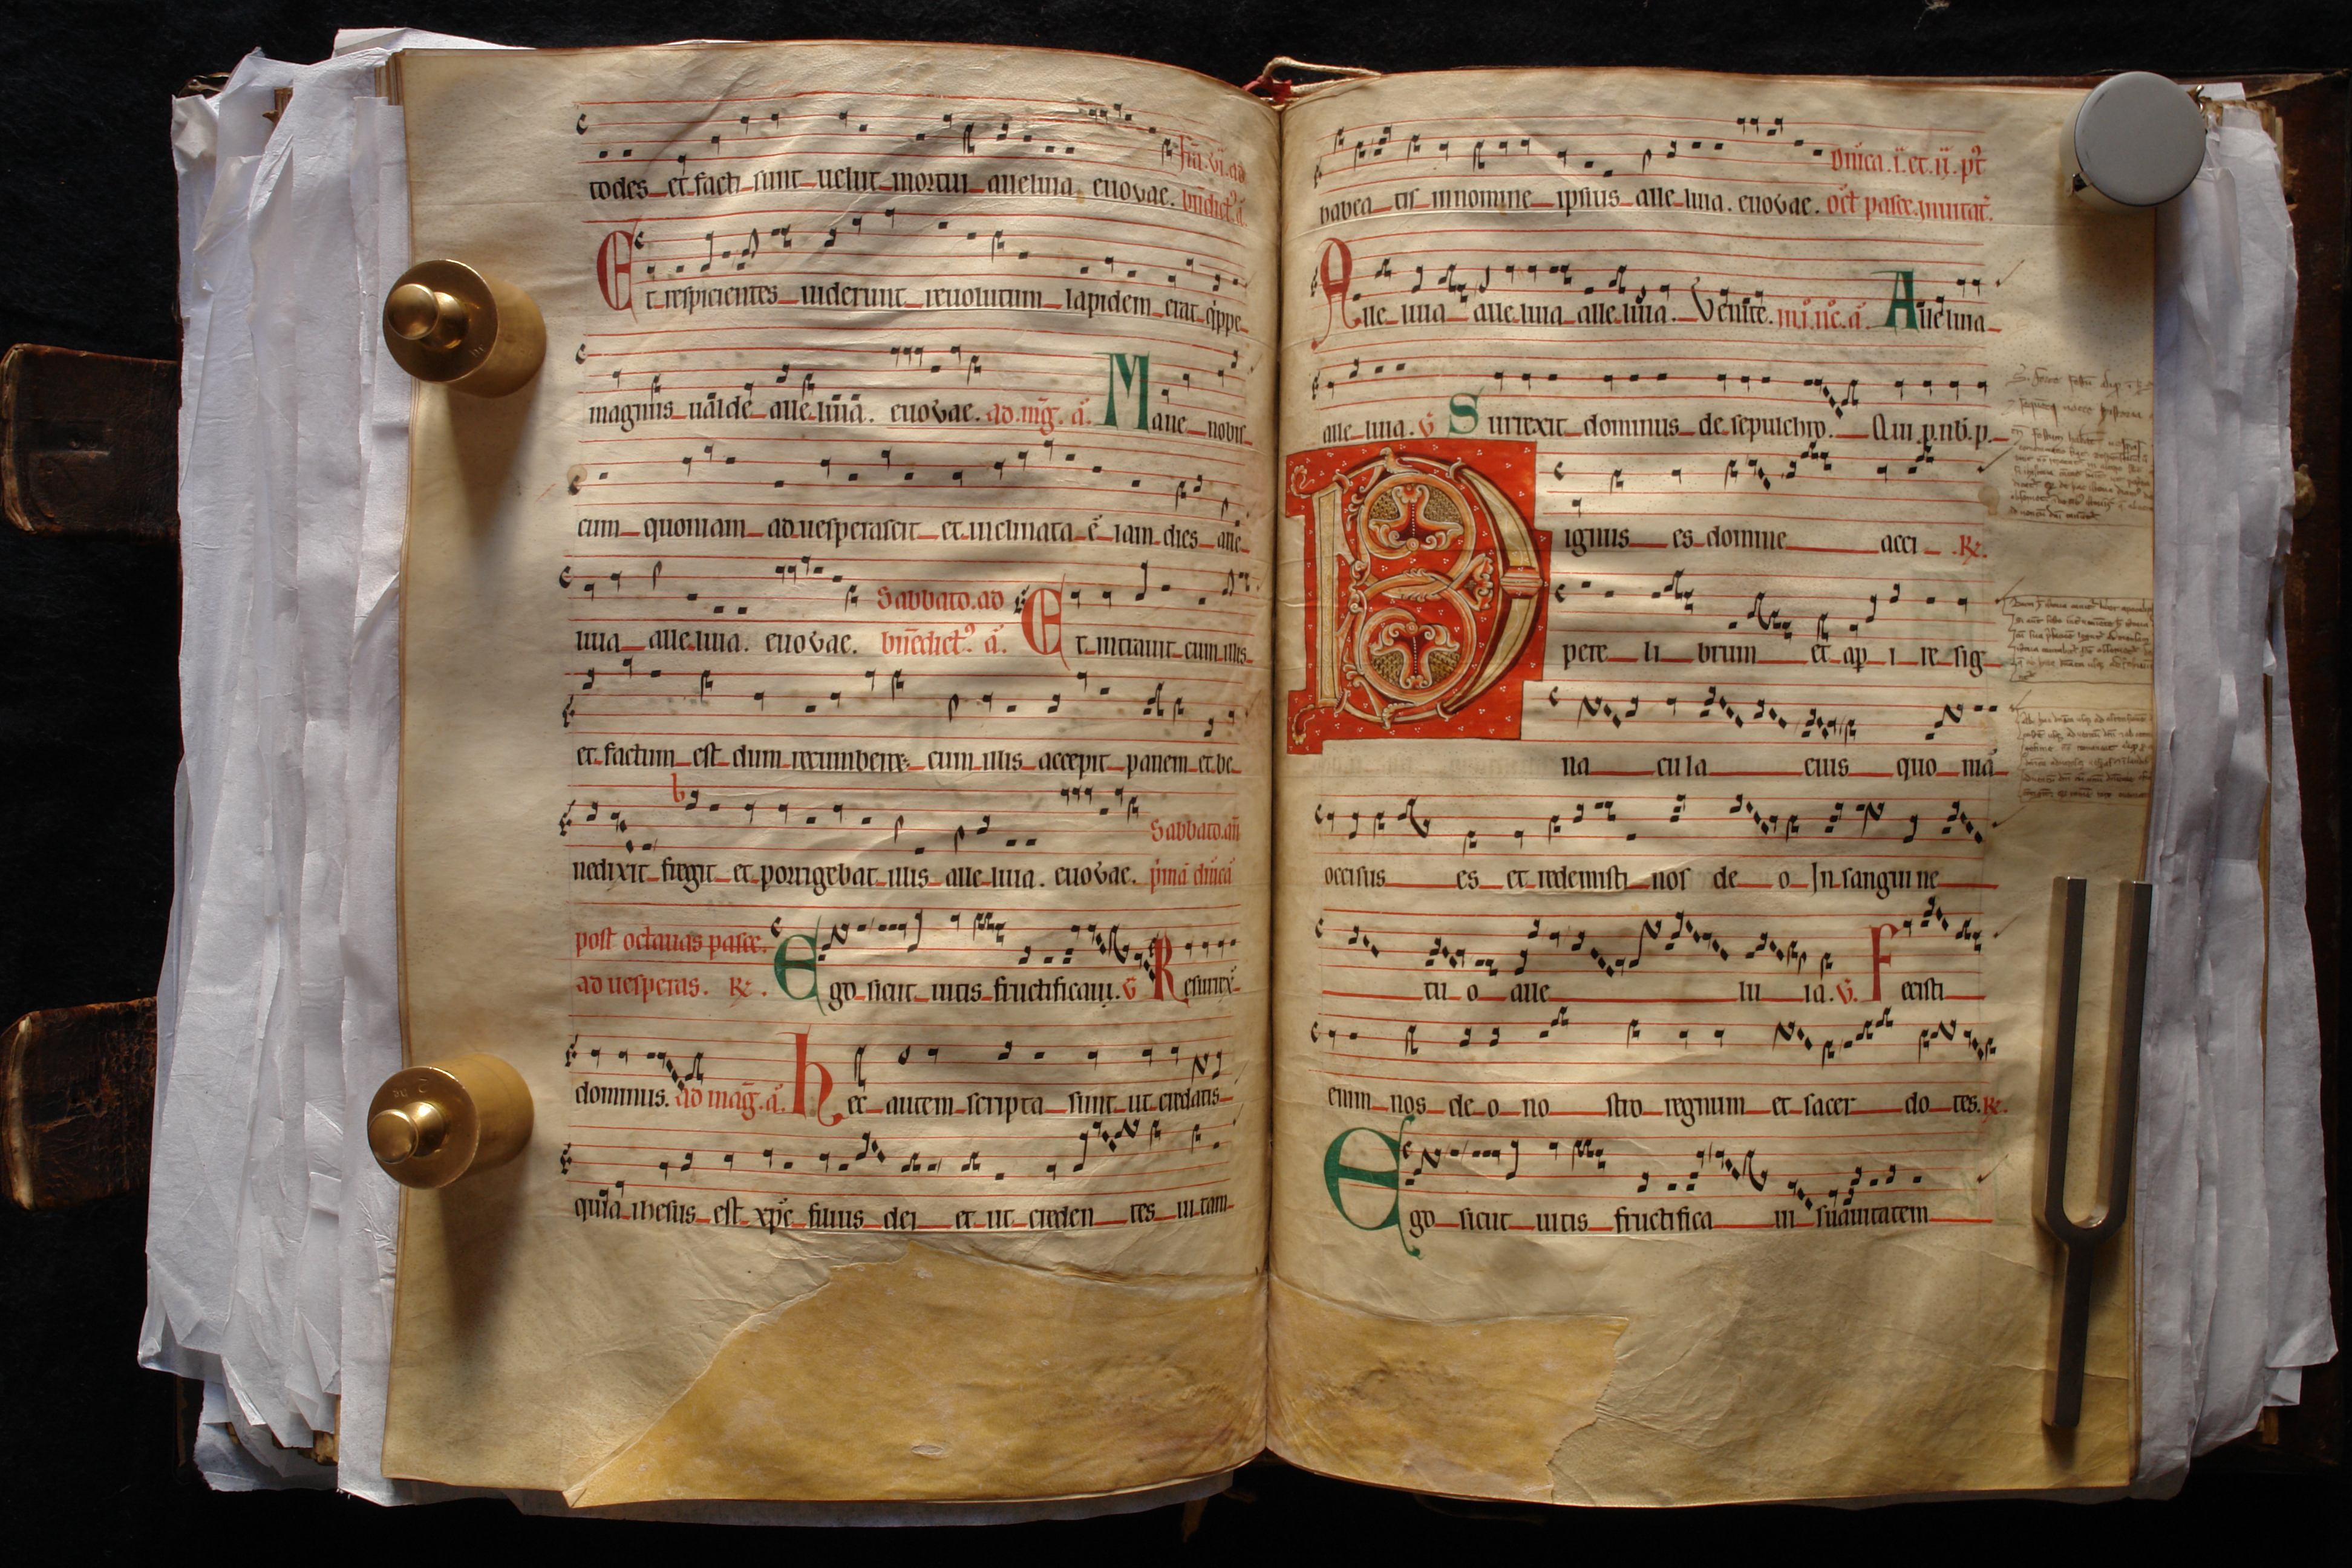 todes et facti sunt uelut mortui alleluia euovae. fr̄ia. vi. ad
bn̄dict⁹ a͞.
Et respicientes uiderunt reuolutum lapidem erat q̍ppe
magnus ualde alleluia. euovae. ad. mḡ. a͞. Mane nobis
cum quoniam aduesperascit et inclinata ē iam dies alle
luia alleluia. euovae. Sabbato. ad
bn̄edict⁹. a͞. Et intrauit cum illis
et factum est dum recumberet cum illis accepit panem et be
nedixit fregit et porrigebat illis alleluia. euovae. Sabbato. an̄
p̍mā dn̄icā
post octauas pasce.
ad uesperas. R. Ego sicut uitis fructificaui. v Resurrex̄
dominus. ad maḡ. a͞. Hec autem scripta sunt ut credatis
quia ihesus est xp̄c filius dei et ut creden tes uitam
habea tis innomine ipsius alleluia. euovae. Dn̄ica. i. et. ii. pt
oct̄ pasce. inuitat̄.
Alleluia alleluia alleluia. Venite. in. i. nc̄. a͞. Alleluia
alleluia. v Surrexit dominus de sepulchro. Qui p. nb̄. p.
Dignus es domine acci R.
pere li brum et ap i re sig
na cula eius quo niā
occisus es et redemisti nos de o In sangui ne
tu o alle lu ia. v. Fecisti
enim nos de o no stro regnum et sacer do tes. R.
Ego sicut uitis fructifica ui suauitatem